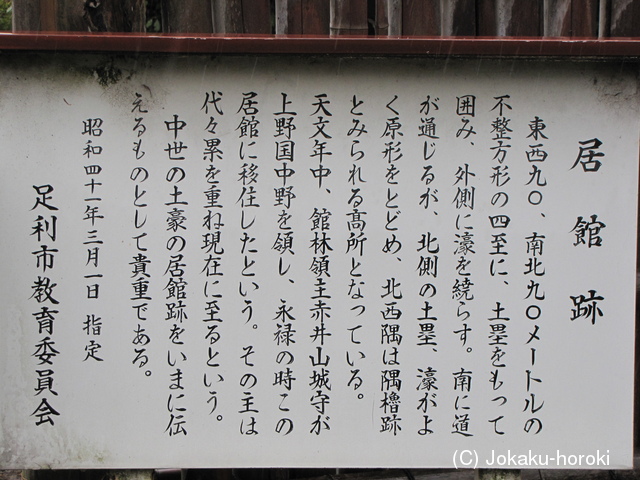 居館跡
東西九〇、南北九〇メートルの
不整方形の四至に、土塁をもって
囲み、外側に濠を繞らす。南に道
が通じるが、北側の土塁、濠がよ
く原形をとどめ、北西隅は隅櫓跡
とみられる高所となっている。
天文年中、館林領主赤井山城守が
上野国中野を領し、永禄の時この
居館に移住したという。その主は
代々累を重ね現在に至るという。
中世の土豪の居館跡をいまに伝
えるものとして貴重である。
昭和四十一年三月一日 指定
足利市教育委員会
(C) Jokaku-horoki